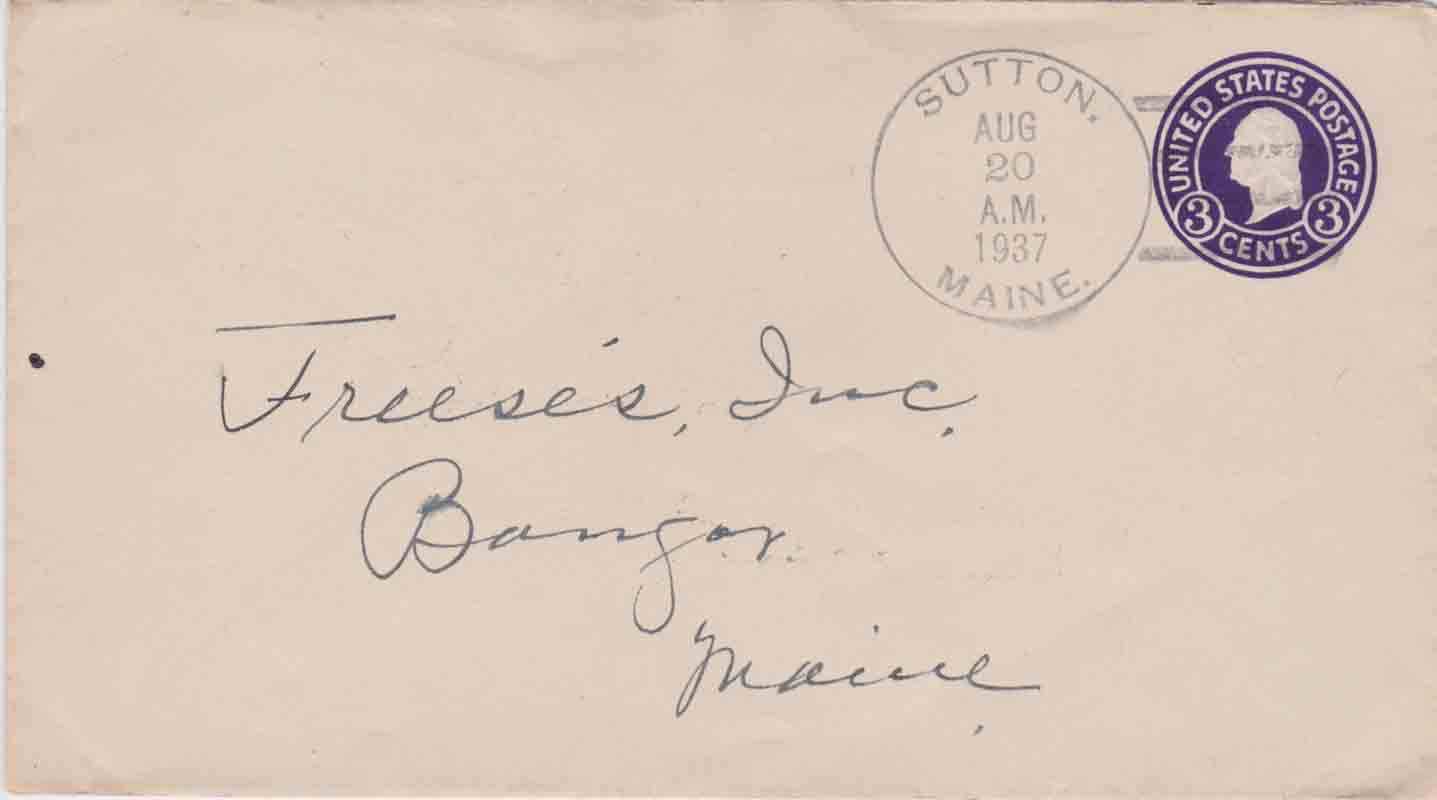 SUTTON.
AUG
20
A.M.
1937
MAINE.
UNITED STATES POSTAGE
3 CENTS 3
Freese's, Inc.
Bangor
Maine.